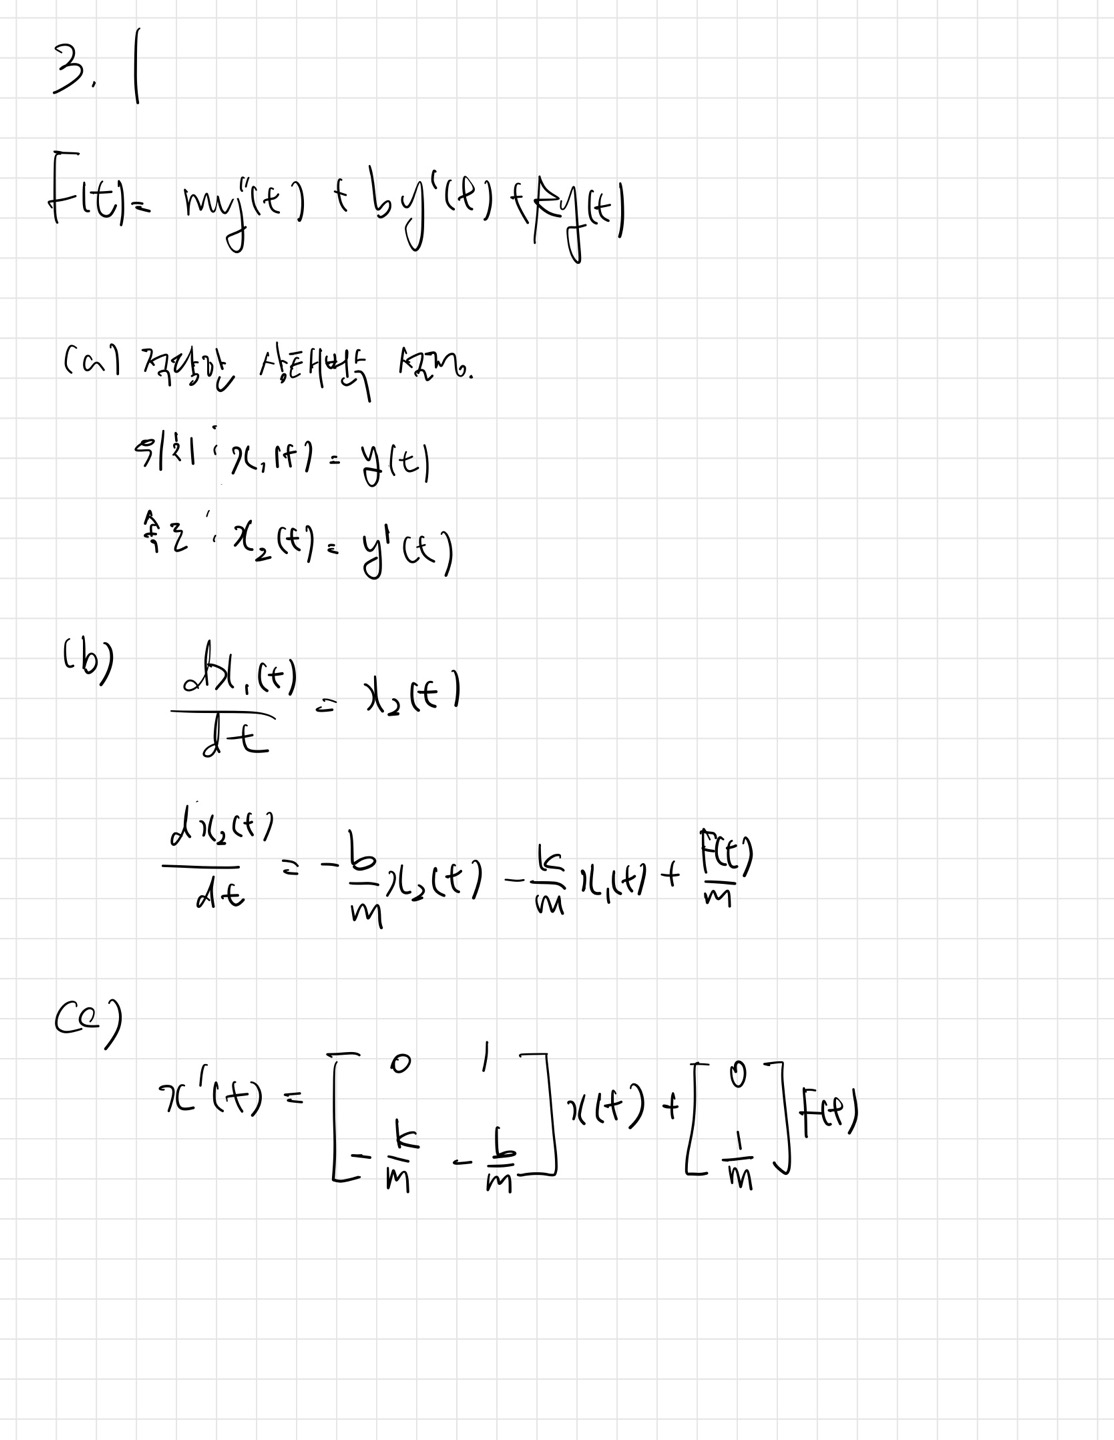 3. 1
F(t) = my''(t) + by'(t) + ky(t)
(a) 적당한 상태변수 설정.
위치 : x₁(t) = y(t)
속도 : x₂(t) = y'(t)
(b) dx₁(t)/dt = x₂(t)
dx₂(t)/dt = -b/m x₂(t) - k/m x₁(t) + F(t)/m
(c)
x'(t) = [0 1; -k/m -b/m] x(t) + [0; 1/m] F(t)